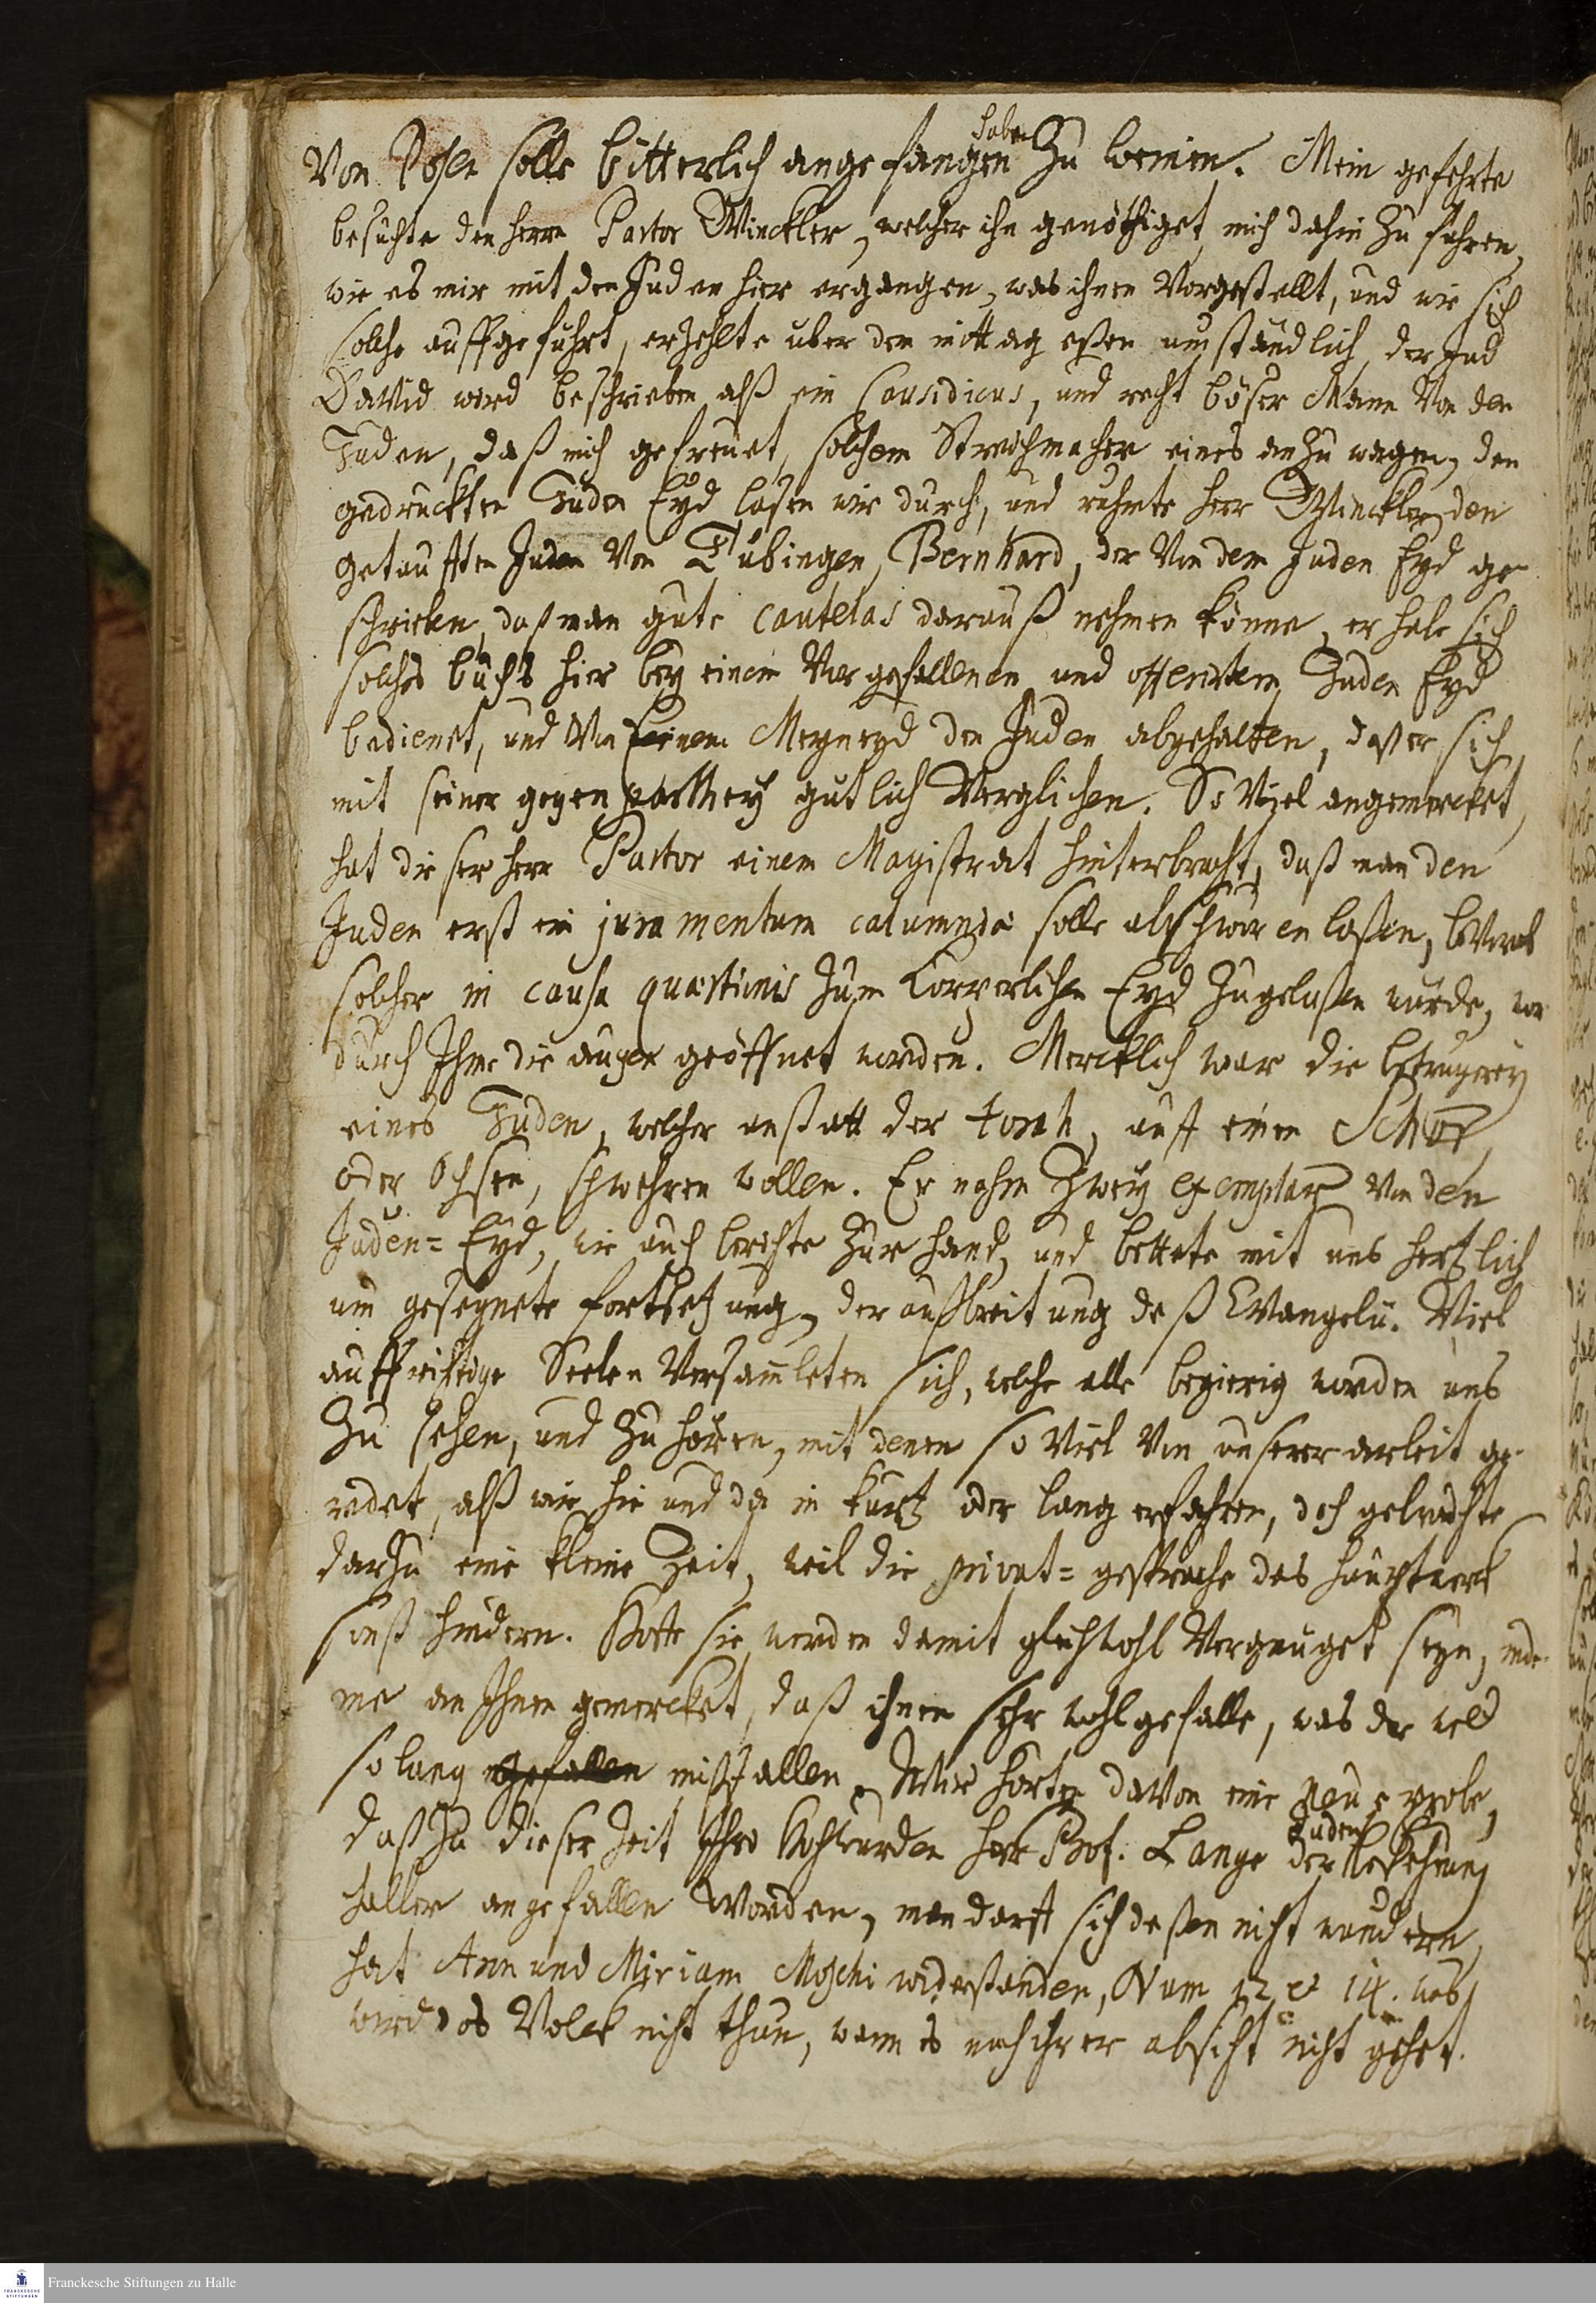 Von Posen solle bitterlich angefangen haben Zu weinen. Mein gefehrte
besuchte den Herrn Pastor Winckler, welcher ihn genöthiget mich dahin Zu führen,
wie es mir mit den Juden hier ergangen, was ihnen Vorgestellt, und wie sich
solche auffgeführt, erzehlte uber dem mittag eßen umständlich, der Jud
David wird beschrieben alß ein Causidicus, und recht böser Mann Von den
Juden, daß mich gefreuet, solchem Streichmacher eines an Zu wagen, den
gedruckten Juden Eyd lasen wir durch, und ruhmte Herr Winckler, den
getaufften Juden Von Tübingen, Bernhard, der Von dem Juden Eyd ge
schrieben, daß man gute cautelas darauß nehmen könne, er habe sich
solches buchs hier bey einem Vorgefallenen und offerirtem Juden Eyd
bedienet, und Von seinem Meyneyd den Juden abgehalten, daß er sich
mit seiner gegen parthey gutlich Verglichen. So Viel angemercket,
hat dieser Herr Pastor einem Magistrat hinterbracht, daß man den
Juden erst ein juramentum calumniæ solle abschwören laßen, bevor
solcher in causa quæstionis Zum Corperlichen Eyd Zugelaßen würde, wo
durch Ihme die augen geöffnet worden. Mercklich war die betrugerey
eines Juden, welcher anstatt der torah, auff einen Schor
oder Ochsen, schwehren wollen. Er nahm Zwey exemplar Von den
Juden=Eyd, wie auch berichte Zur Hand, und bettete mit uns hertzlich
um gesegnete fortsetzung, der außbreitung deß Evangelii. Viel
auffrichtige Seelen Versam̄leten sich, welche alle begierig worden uns
Zu sehen, und Zu hören, mit denen so Viel Von unserer arbeit ge
redet, alß wir hie und da in kurtz oder lang erfahren, doch gebrauchte
darzu eine kleine Zeit, weil die privat=gespräche das Hauptwerck
sonst hindern. Hoffe sie werden damit gleichwohl Vergnüget seyn, inde
me an Ihnen gemercket, daß ihnen sehr wohlgefalle, was der welt
so lang gefallen mißfallen, Wir horten davon eine neue probe,
daß Zu dieser Zeit Ihro Hochwurden Herr Prof. Lange der Juden bekehrung
halber angefallen worden, man darff sich deßen nicht wundern,
hat Aron und Miriam Moschi widerstanden, Num 12 et 14. was
wird das Volck nicht thun, wann es nach ihrer absicht nicht gehet.
Franckesche Stiftungen zu Halle